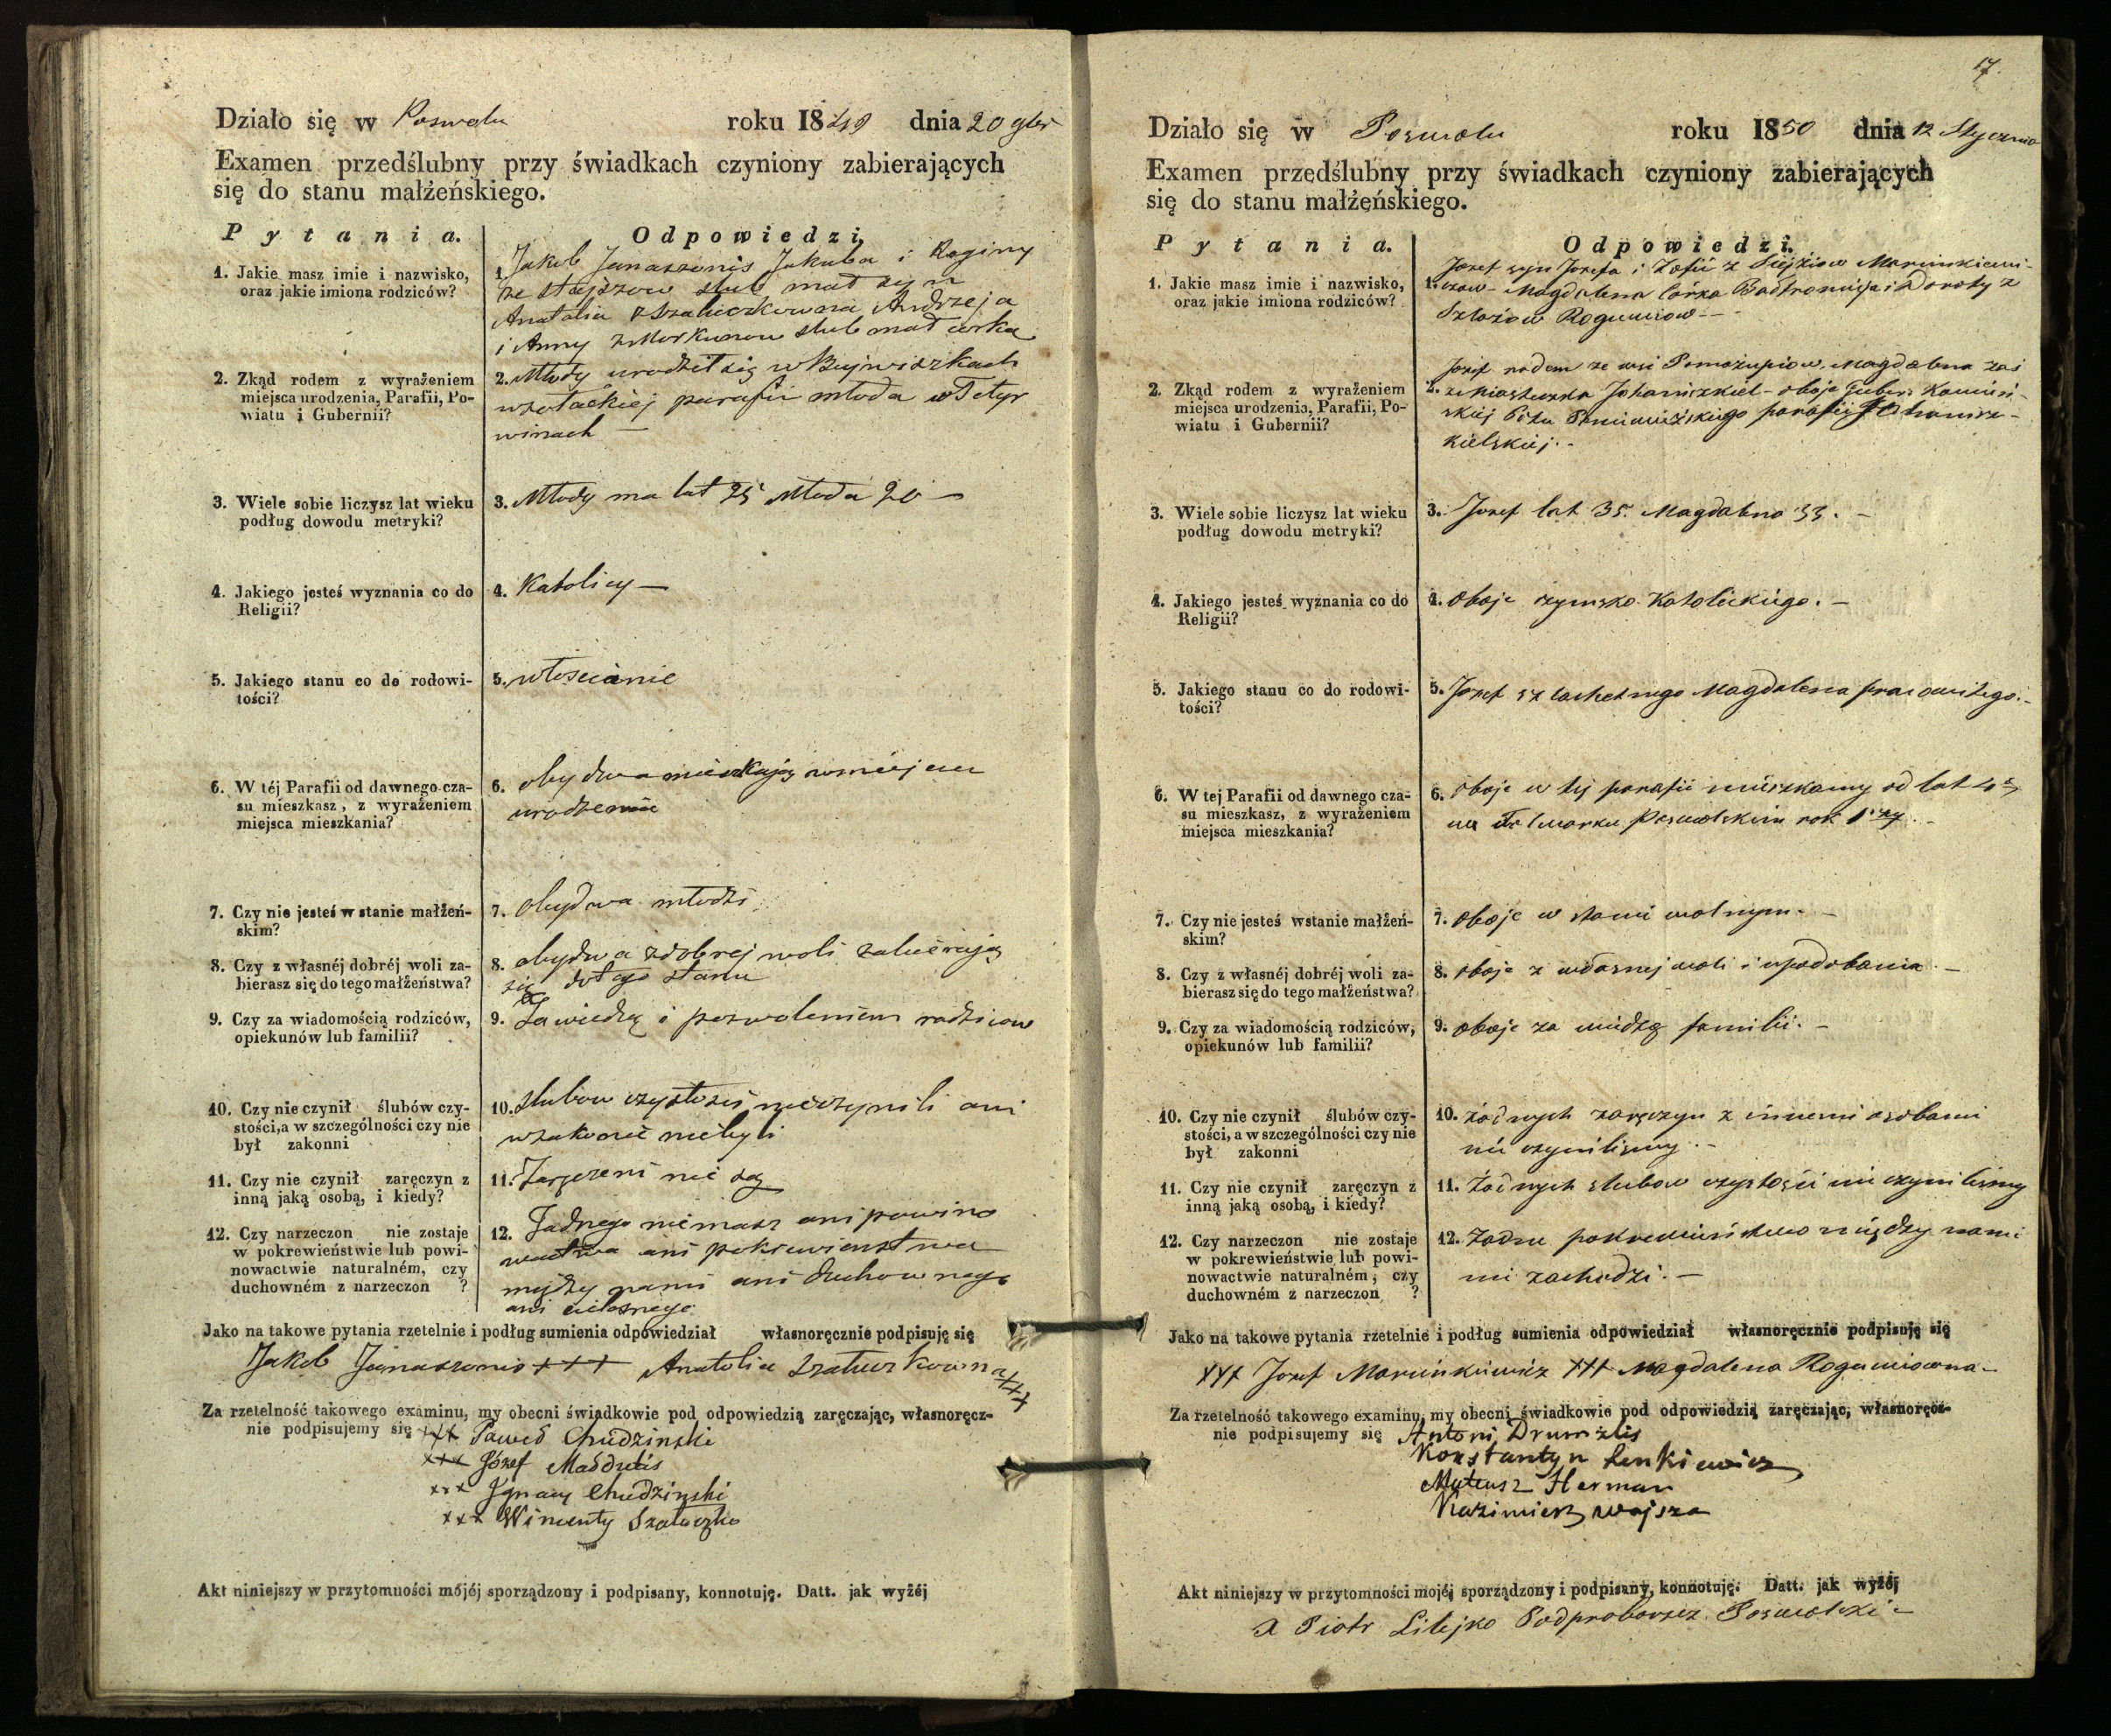 Działo się w Poswolu roku 1849 dnia 20 9bra
Examen przedślubny przy świadkach czyniony zabierających
się do stanu małżeńskiego.
Pytania.
Odpowiedzi.
1. Jakie masz imie i nazwisko,
oraz jakie imiona rodziców?
1. Jakób Janaszonis Jakuba i Reginy
ze Stajszow slub mał syn
Anatolia Szałuczkowna Andrzeja
i Anny z Morkunow slub mał curka
2. Zkąd rodem z wyrażeniem
miejsca urodzenia, Parafii, Po-
wiatu i Gubernii?
2. Młody urodził się w
parafii młoda w Tetyr
winach
3. Wiele sobie liczysz lat wieku
podług dowodu metryki?
3. Młody ma lat 25 Młoda 20 —
4. Jakiego jesteś wyznania co do
Religii?
4. Katolicy —
5. Jakiego stanu co do rodowi-
tości?
5. włoscianie
6. W téj Parafii od dawnego cza-
su mieszkasz, z wyrażeniem
miejsca mieszkania?
6. obydwa mieszkają w miejscu
urodzenia
7. Czy nie jesteś w stanie małżeń-
skim?
7. obydwa młodzi
8. Czy z własnéj dobréj woli za-
bierasz się do tego małżeństwa?
8. obydwa z dobrej woli zabierają
się do tego stanu
9. Czy za wiadomością rodziców,
opiekunów lub familii?
9. Za wiedzą i pozwoleniem rodzicow
10. Czy nie czynił ślubów czy-
stości, a w szczególności czy nie
był zakonni
10. slubow czystosci nieczynili ani
w zakonie niebyli
11. Czy nie czynił zaręczyn z
inną jaką osobą, i kiedy?
11. Zaręczeni nie są
12. Czy narzeczon nie zostaje
w pokrewieństwie lub powi-
nowactwie naturalném, czy
duchowném z narzeczon ?
12. Żadnego niemasz ani powino
wactwa ani pokrewienstwa
między nami ani duchownego
ani cielesnego
Jako na takowe pytania rzetelnie i podług sumienia odpowiedział własnoręcznie podpisuję się
Jakób Janaszonis +++ Anatolia Szałuczkowna +++
Za rzetelność takowego examinu, my obecni świadkowie pod odpowiedzią zaręczając, własnoręcz-
nie podpisujemy się +++ Paweł Chudzinski
+++ Józef
+++ Ignacy Chudzinski
+++ Wincenty Szałuczko
Akt niniejszy w przytomności mojéj sporządzony i podpisany, konnotuję. Datt. jak wyżéj
17.
Działo się w Poswolu roku 1850 dnia 12 Stycznia
Examen przedślubny przy świadkach czyniony zabierających
się do stanu małżeńskiego.
Pytania.
Odpowiedzi.
1. Jakie masz imie i nazwisko,
oraz jakie imiona rodziców?
1. Jozef syn Jozefa i Zofii z Marcinkiewi-
czow — Magdalena Córka Bartłomieja i Doroty z
Szlażow Roguciow —
2. Zkąd rodem z wyrażeniem
miejsca urodzenia, Parafii, Po-
wiatu i Gubernii?
2. Jozef rodem ze wsi Magdalena zaś
z Miasteczka Johaniszkiel — oboje Guber: Kowień-
skiej Ptu Poniewieżskiego parafii Johanisz-
kielskiej. —
3. Wiele sobie liczysz lat wieku
podług dowodu metryki?
3. Jozef lat 35. Magdalena 33. —
4. Jakiego jesteś wyznania co do
Religii?
4. oboje rzymsko Katolickiego. —
5. Jakiego stanu co do rodowi-
tości?
5. Jozef szlachetnego Magdalena pracowitego. —
6. W tej Parafii od dawnego cza-
su mieszkasz, z wyrażeniem
miejsca mieszkania?
6. oboje w tej parafii mieszkamy od lat
na Folwarku Poswolskim rok 1szy. —
7. Czy nie jesteś wstanie małżeń-
skim?
7. oboje w stanie wolnym. —
8. Czy z własnéj dobréj woli za-
bierasz się do tego małżeństwa?
8. oboje z własnej woli i upodobania —
9. Czy za wiadomością rodziców,
opiekunów lub familii?
9. oboje za wiedzą familii. —
10. Czy nie czynił ślubów czy-
stości, a w szczególności czy nie
był zakonni
10. żadnych zaręczyn z innemi osobami
nie czyniliśmy. —
11. Czy nie czynił zaręczyn z
inną jaką osobą, i kiedy?
11. Żadnych slubow czystości nie czyniliśmy
12. Czy narzeczon nie zostaje
w pokrewieństwie lub powi-
nowactwie naturalném, czy
duchowném z narzeczon ?
12. Żadne pokrewieństwo między nami
nie zachodzi. —
Jako na takowe pytania rzetelnie i podług sumienia odpowiedział własnoręcznie podpisuję się
+++ Jozef Marcinkiewicz +++ Magdalena Roguciowna —
Za rzetelność takowego examinu, my obecni świadkowie pod odpowiedzią zaręczając, własnoręcz-
nie podpisujemy się Antoni Drumzlis
Konstantyn Lenkiewicz
Mateusz Herman
Kazimierz Wajsza
Akt niniejszy w przytomności mojéj sporządzony i podpisany, konnotuję. Datt. jak wyżéj
X Piotr Litejko Podproboszcz Poswolski —